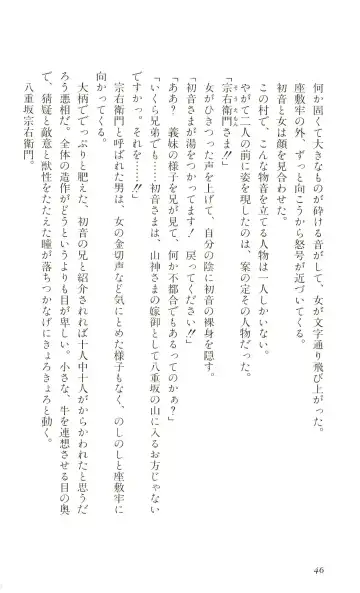 何か固くて大きなものが砕ける音がして、女が文字通り飛び上がった。
座敷牢の外、ずっと向こうから怒号が近づいてくる。
初音と女は顔を見合わせた。
この村で、こんな物音を立てる人物は一人しかいない。
やがて二人の前に姿を現したのは、案の定その人物だった。
「宗右衛門さま!!」
女がひきつった声を上げて、自分の陰に初音の裸身を隠す。
「初音さまが湯をつかってます! 戻ってください!!」
「ああ? 義妹の様子を兄が見て、何か不都合でもあるってのかぁ?」
「いくら兄弟でも……初音さまは、山神さまの嫁御として八重坂の山に入るお方じゃない
ですかっ。それを……!!」
宗右衛門と呼ばれた男は、女の金切声など気にとめた様子もなく、のしのしと座敷牢に
向かってくる。
大柄ででっぷりと肥えた、初音の兄と紹介されれば十人中十人がからかわれたと思うだ
ろう悪相だ。全体の造作がどうというよりも目が卑しい。小さな、牛を連想させる目の奥
で、猜疑と敵意と獣性をたたえた瞳が落ちつかなげにきょろきょろと動く。
八重坂宗右衛門。
46